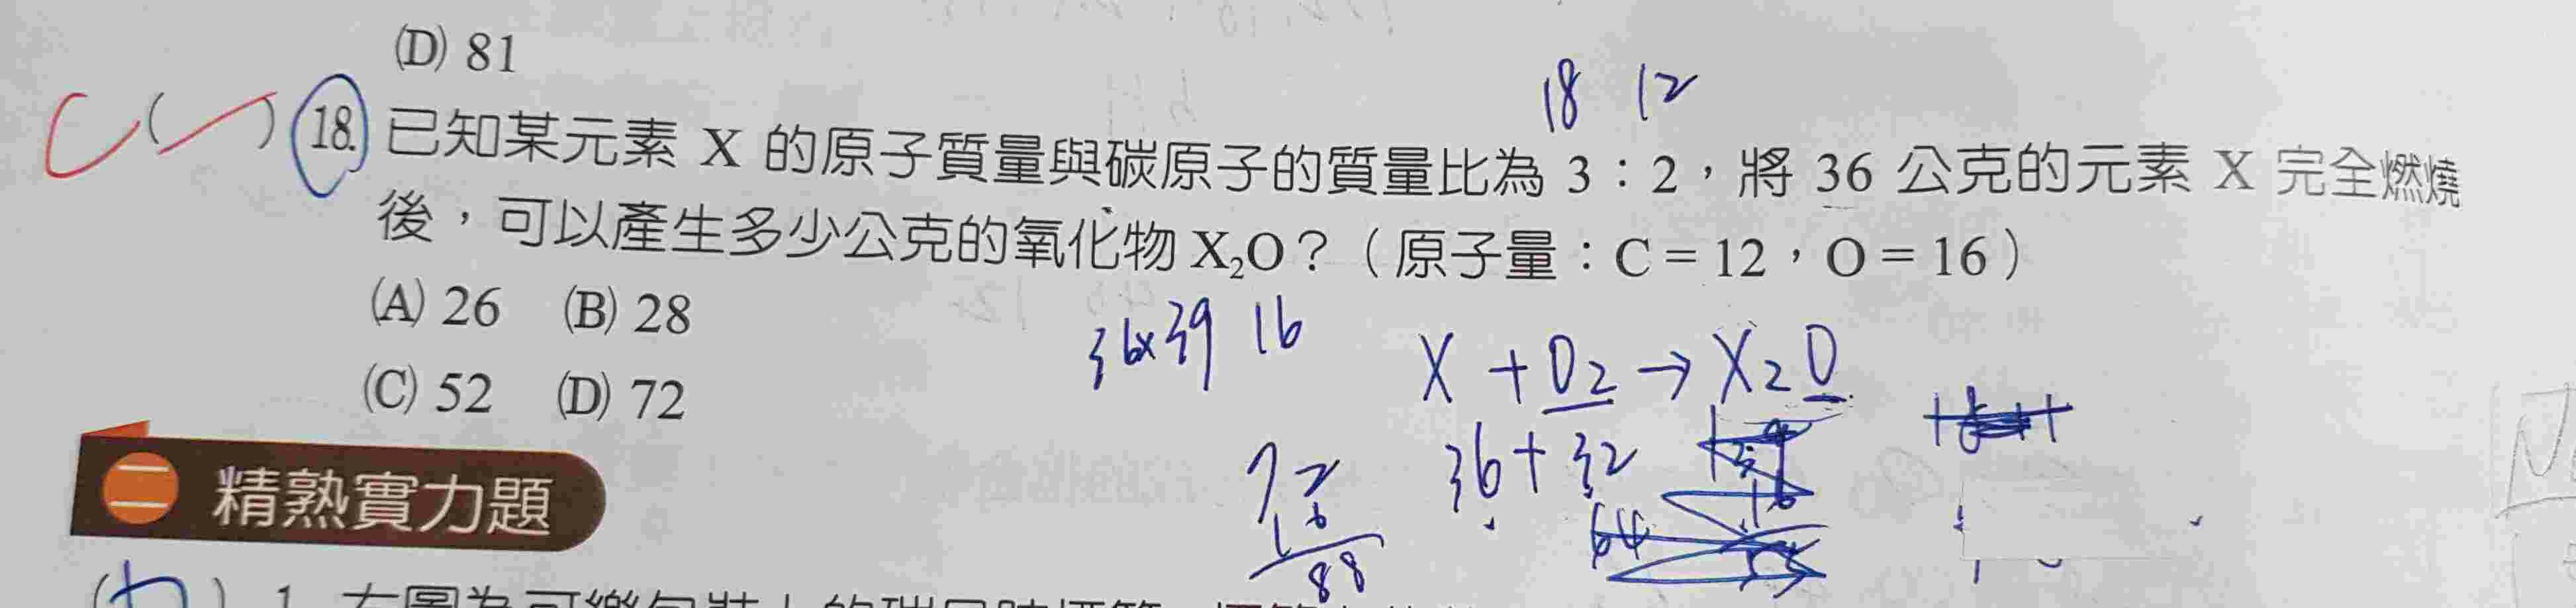 (D) 81
18 12
C ( ) 18. 已知某元素 X 的原子質量與碳原子的質量比為 3：2，將 36 公克的元素 X 完全燃燒
後，可以產生多少公克的氧化物 X₂O？（原子量：C＝12，O＝16）
(A) 26 (B) 28
36x39 16
X + O₂ → X₂O
(C) 52 (D) 72
36+32
72
16
88
64
二 精熟實力題